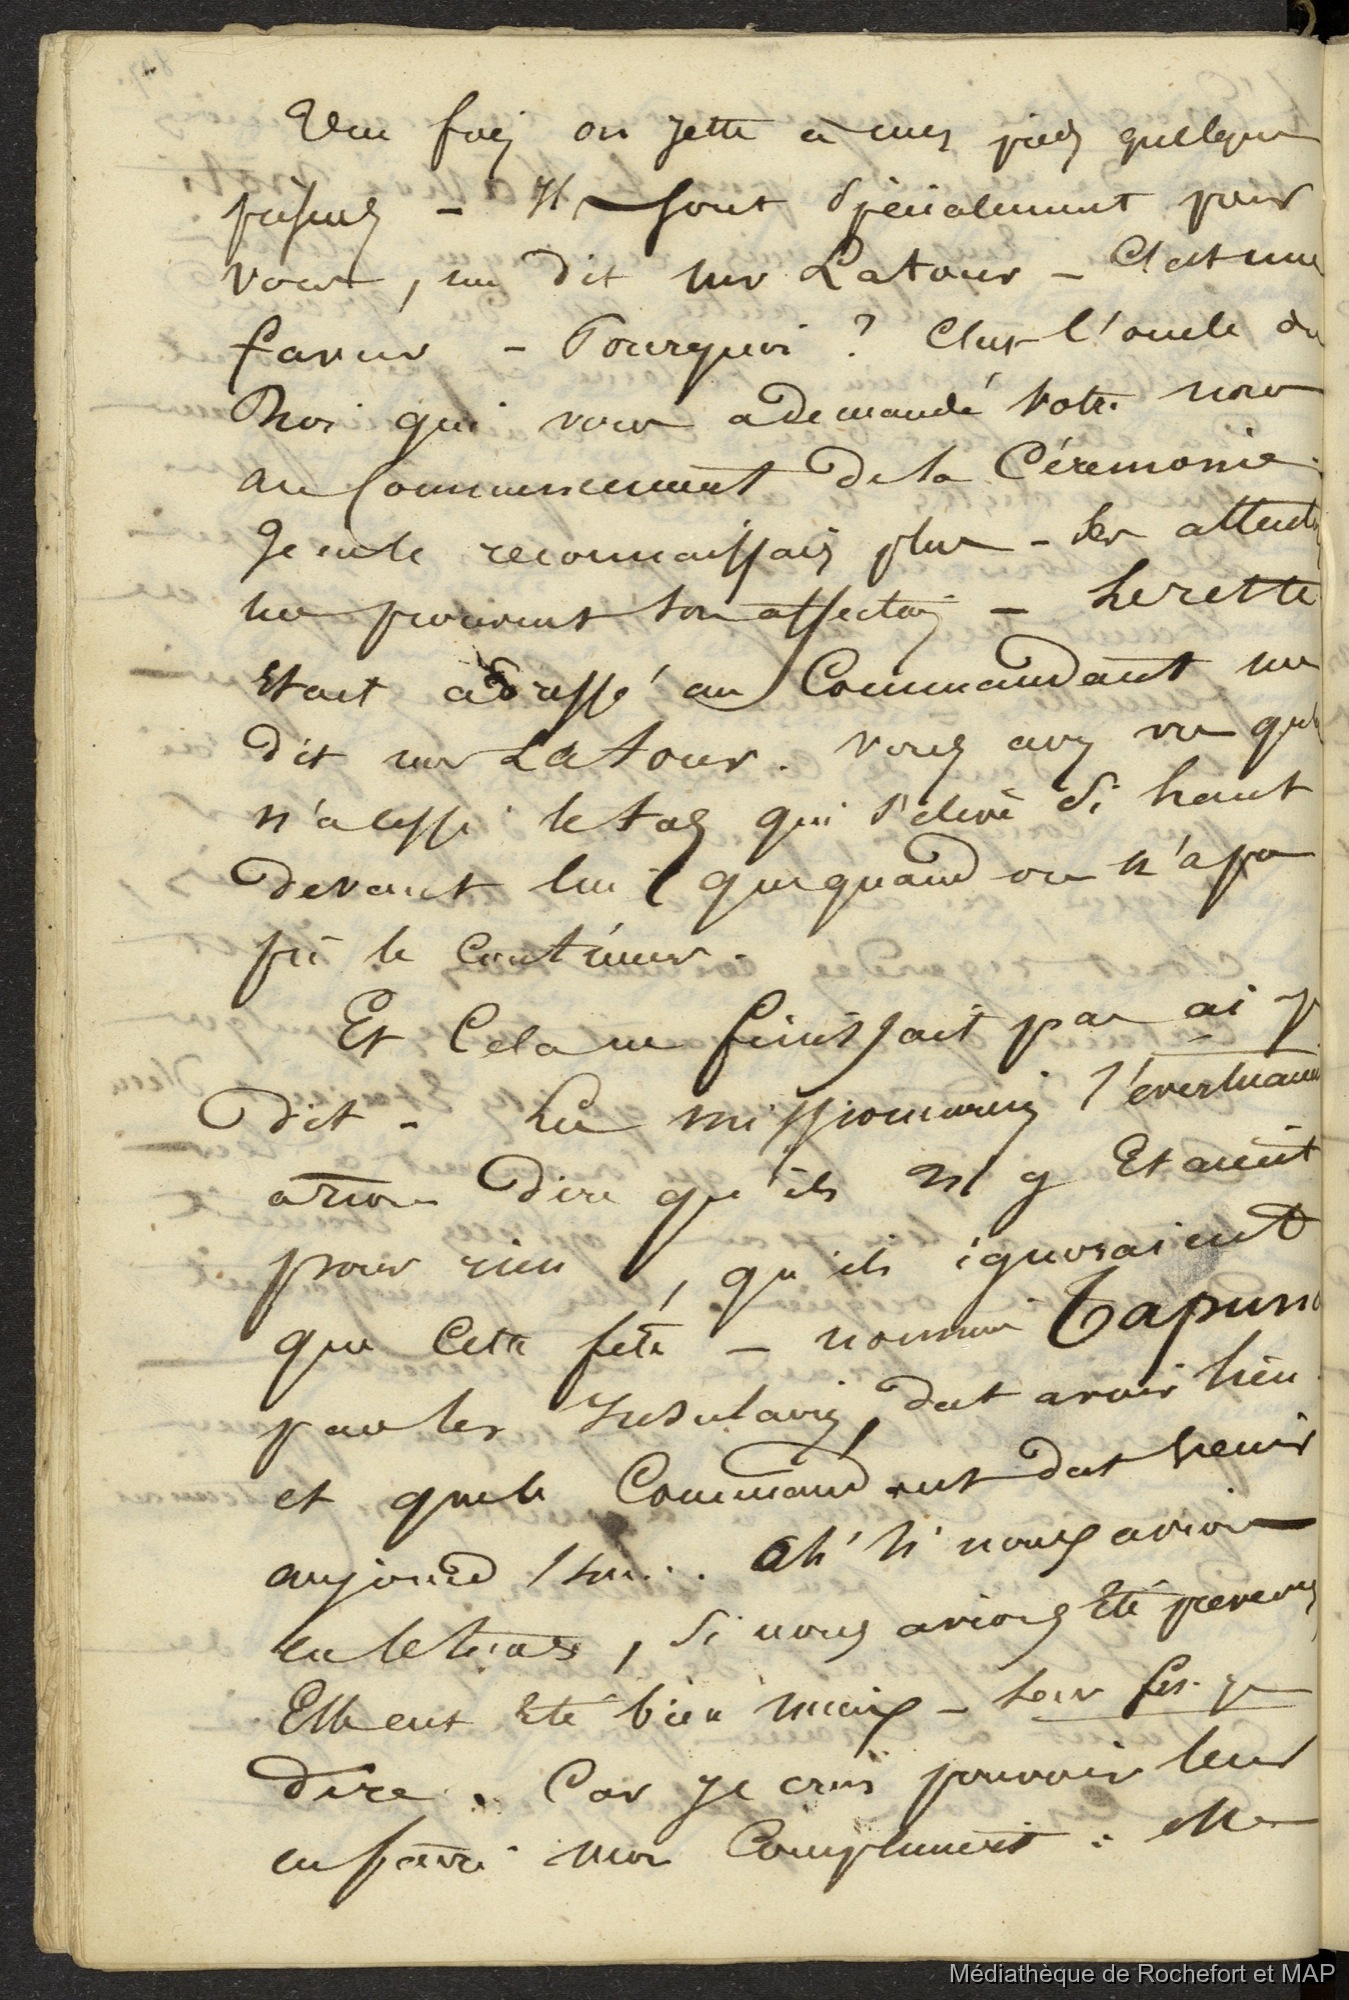 Une fois on jette à mes pieds quelques
présents - Ils sont spécialement pour
vous, me dit mr Latour - C'est une
faveur - Pourquoi ? C'est l'oncle du
Roi qui vous a demandé votre nom
au Commencement de la Cérémonie.
Je ne le reconnaissais plus - Ses attent
me prouvent son affection - Le reste
Etait adressé au Commandant me
dit mr Latour. Vous avez vu qu
n'a cessé le tas qui s'élève si haut
devant lui que quand on n'a pu
le continuer.
Et Cela ne finissait pas ai je
dit - Les missionnaires s'évertuaient
à nous dire qu'ils n'y Etaient
pour rien, qu'ils ignoraient
que Cette fête - nommée Tapun
par les Insulaires, dut avoir lieu
et que le Commandant dut venir
aujourd'hui... Ah! Si nous avions
eu le temps, Si nous avions Eté prévenus
Elle eut Eté bien mieux - leur fis-je
dire. Car je crus pouvoir leur
en faire mon Compliment : elle